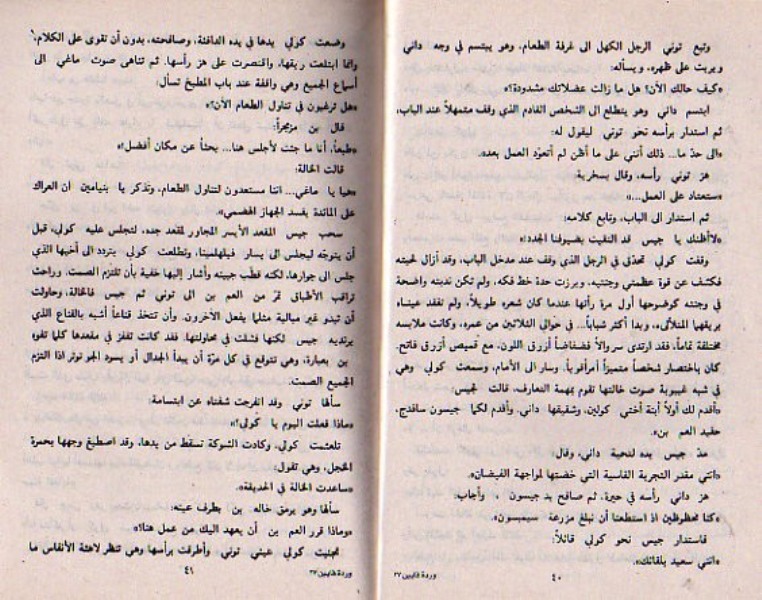 وتبع توني الرجل الكهل الى غرفة الطعام، وهو يبتسم في وجه داني
ويربت على ظهره، ويسأله:
«كيف حالك الآن؟ هل ما زالت عضلاتك مشدودة؟»
ابتسم داني وهو يتطلع الى الشخص القادم الذي وقف متمهلاً عند الباب،
ثم استدار برأسه نحو توني ليقول له:
«الى حدّ ما... ذلك أنني على ما أظن لم أتعوّد العمل بعد».
هز توني رأسه، وقال بسخرية:
«ستعتاد على العمل...»
ثم استدار الى الباب، وتابع كلامه:
«لا أظنك يا جيس قد التقيت بضيوفنا الجدد!»
وقفت كولي تحدّق في الرجل الذي وقف عند مدخل الباب، وقد أزال لحيته
فكشف عن قوة عظمتي وجنتيه، وبرزت حدة خط فكه، ولم تكن ندبته واضحة
في وجنته كوضوحها أول مرة رأتها عندما كان شعره طويلاً، ولم تفقد عيناه
بريقهما المتلألىء، وبدا أكثر شباباً... في حوالي الثلاثين من عمره، وكانت ملابسه
مختلفة تماماً، فقد ارتدى سروالاً فضفاضاً أزرق اللون، مع قميص أزرق فاتح.
كان باختصار شخصاً متميزاً أمرافوياً. وسار الى الأمام، وسمعت كولي وهي
في شبه غيبوبة صوت خالتها تقوم بمهمة التعارف، قالت لجيس:
«أقدم لك أولاً ابنة أختي كولين، وشقيقها داني، وأقدم لكما جيسون سافدج،
حفيد العم بن».
مدّ جيس يده لتحية داني، وقال:
«انني مقدر التجربة القاسية التي خضتها لمواجهة الفيضان».
هز داني رأسه في حيرة، ثم صافح يد جيسون، وأجاب:
«كنا محظوظين اذ استطعنا أن نبلغ مزرعة سيمبسون».
فاستدار جيس نحو كولي قائلاً:
«انني سعيد بلقائك».
٤٠
وردة قايين ٢٧
وضعت كولي يدها في يده الدافئة، وصافحته، بدون أن تقوى على الكلام،
وانما ابتلعت ريقها، واقتصرت على هز رأسها. ثم تناهى صوت ماغي الى
أسماع الجميع وهي واقفة عند باب المطبخ تسأل:
«هل ترغبون في تناول الطعام الآن؟»
قال بن مزمجراً:
«طبعاً، أنا ما جئت لأجلس هنا... بحثاً عن مكان أفضل!»
قالت الخالة:
«هيا يا ماغي... اننا مستعدون لتناول الطعام، وتذكر يا بنيامين أن العراك
على المائدة يفسد الجهاز الهضمي».
سحب جيس المقعد الأيسر المجاور لمقعد جده، لتجلس عليه كولي، قبل
أن يتوجّه ليجلس الى يسار فيلهلمينا، وتطلعت كولي بتردد الى أخيها الذي
جلس الى جوارها، لكنه قطّب جبينه وأشار إليها خفية بأن تلتزم الصمت. وراحت
تراقب الأطباق تمرّ من العم بن الى توني ثم جيس فالخالة، وحاولت
أن تبدو غير مبالية مثلما يفعل الآخرون. وأن تتخذ قناعاً أشبه بالقناع الذي
يرتديه جيس لكنها فشلت في محاولتها. فقد كانت تقفز في مقعدها كلما تفوه
بن بعبارة، وهي تتوقع في كل مرّة أن يبدأ الجدال أو يسود الجو توتر اذا التزم
الجميع الصمت.
سألها توني وقد انفرجت شفتاه عن ابتسامة:
«ماذا فعلت اليوم يا كولي؟»
تلعثمت كولي، وكادت الشوكة تسقط من يدها، وقد اصطبغ وجهها بحمرة
الخجل، وهي تقول:
«ساعدت الخالة في الحديقة».
سألها وهو يرمق خاله بن بطرف عينه:
«وماذا قرر العم بن أن يعهد اليك من عمل هنا؟»
تجنبت كولي عيني توني وأطرقت برأسها وهي تنظر لاهثة الأنفاس ما
٤١
وردة قايين ٢٧